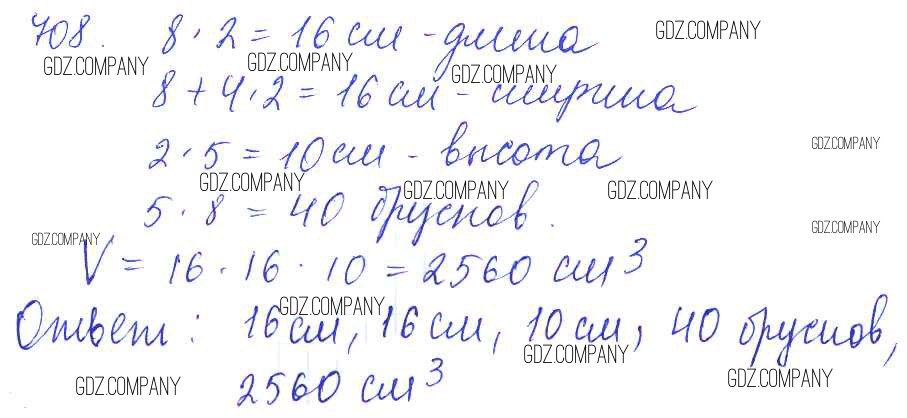 708. 8 · 2 = 16 см - длина
GDZ.COMPANY GDZ.COMPANY GDZ.COMPANY GDZ.COMPANY
8 + 4 · 2 = 16 см - ширина
2 · 5 = 10 см - высота
GDZ.COMPANY
GDZ.COMPANY GDZ.COMPANY GDZ.COMPANY
5 · 8 = 40 брусков.
GDZ.COMPANY GDZ.COMPANY
V = 16 · 16 · 10 = 2560 см³
GDZ.COMPANY
Ответ: 16 см, 16 см, 10 см, 40 брусков,
GDZ.COMPANY
2560 см³
GDZ.COMPANY GDZ.COMPANY